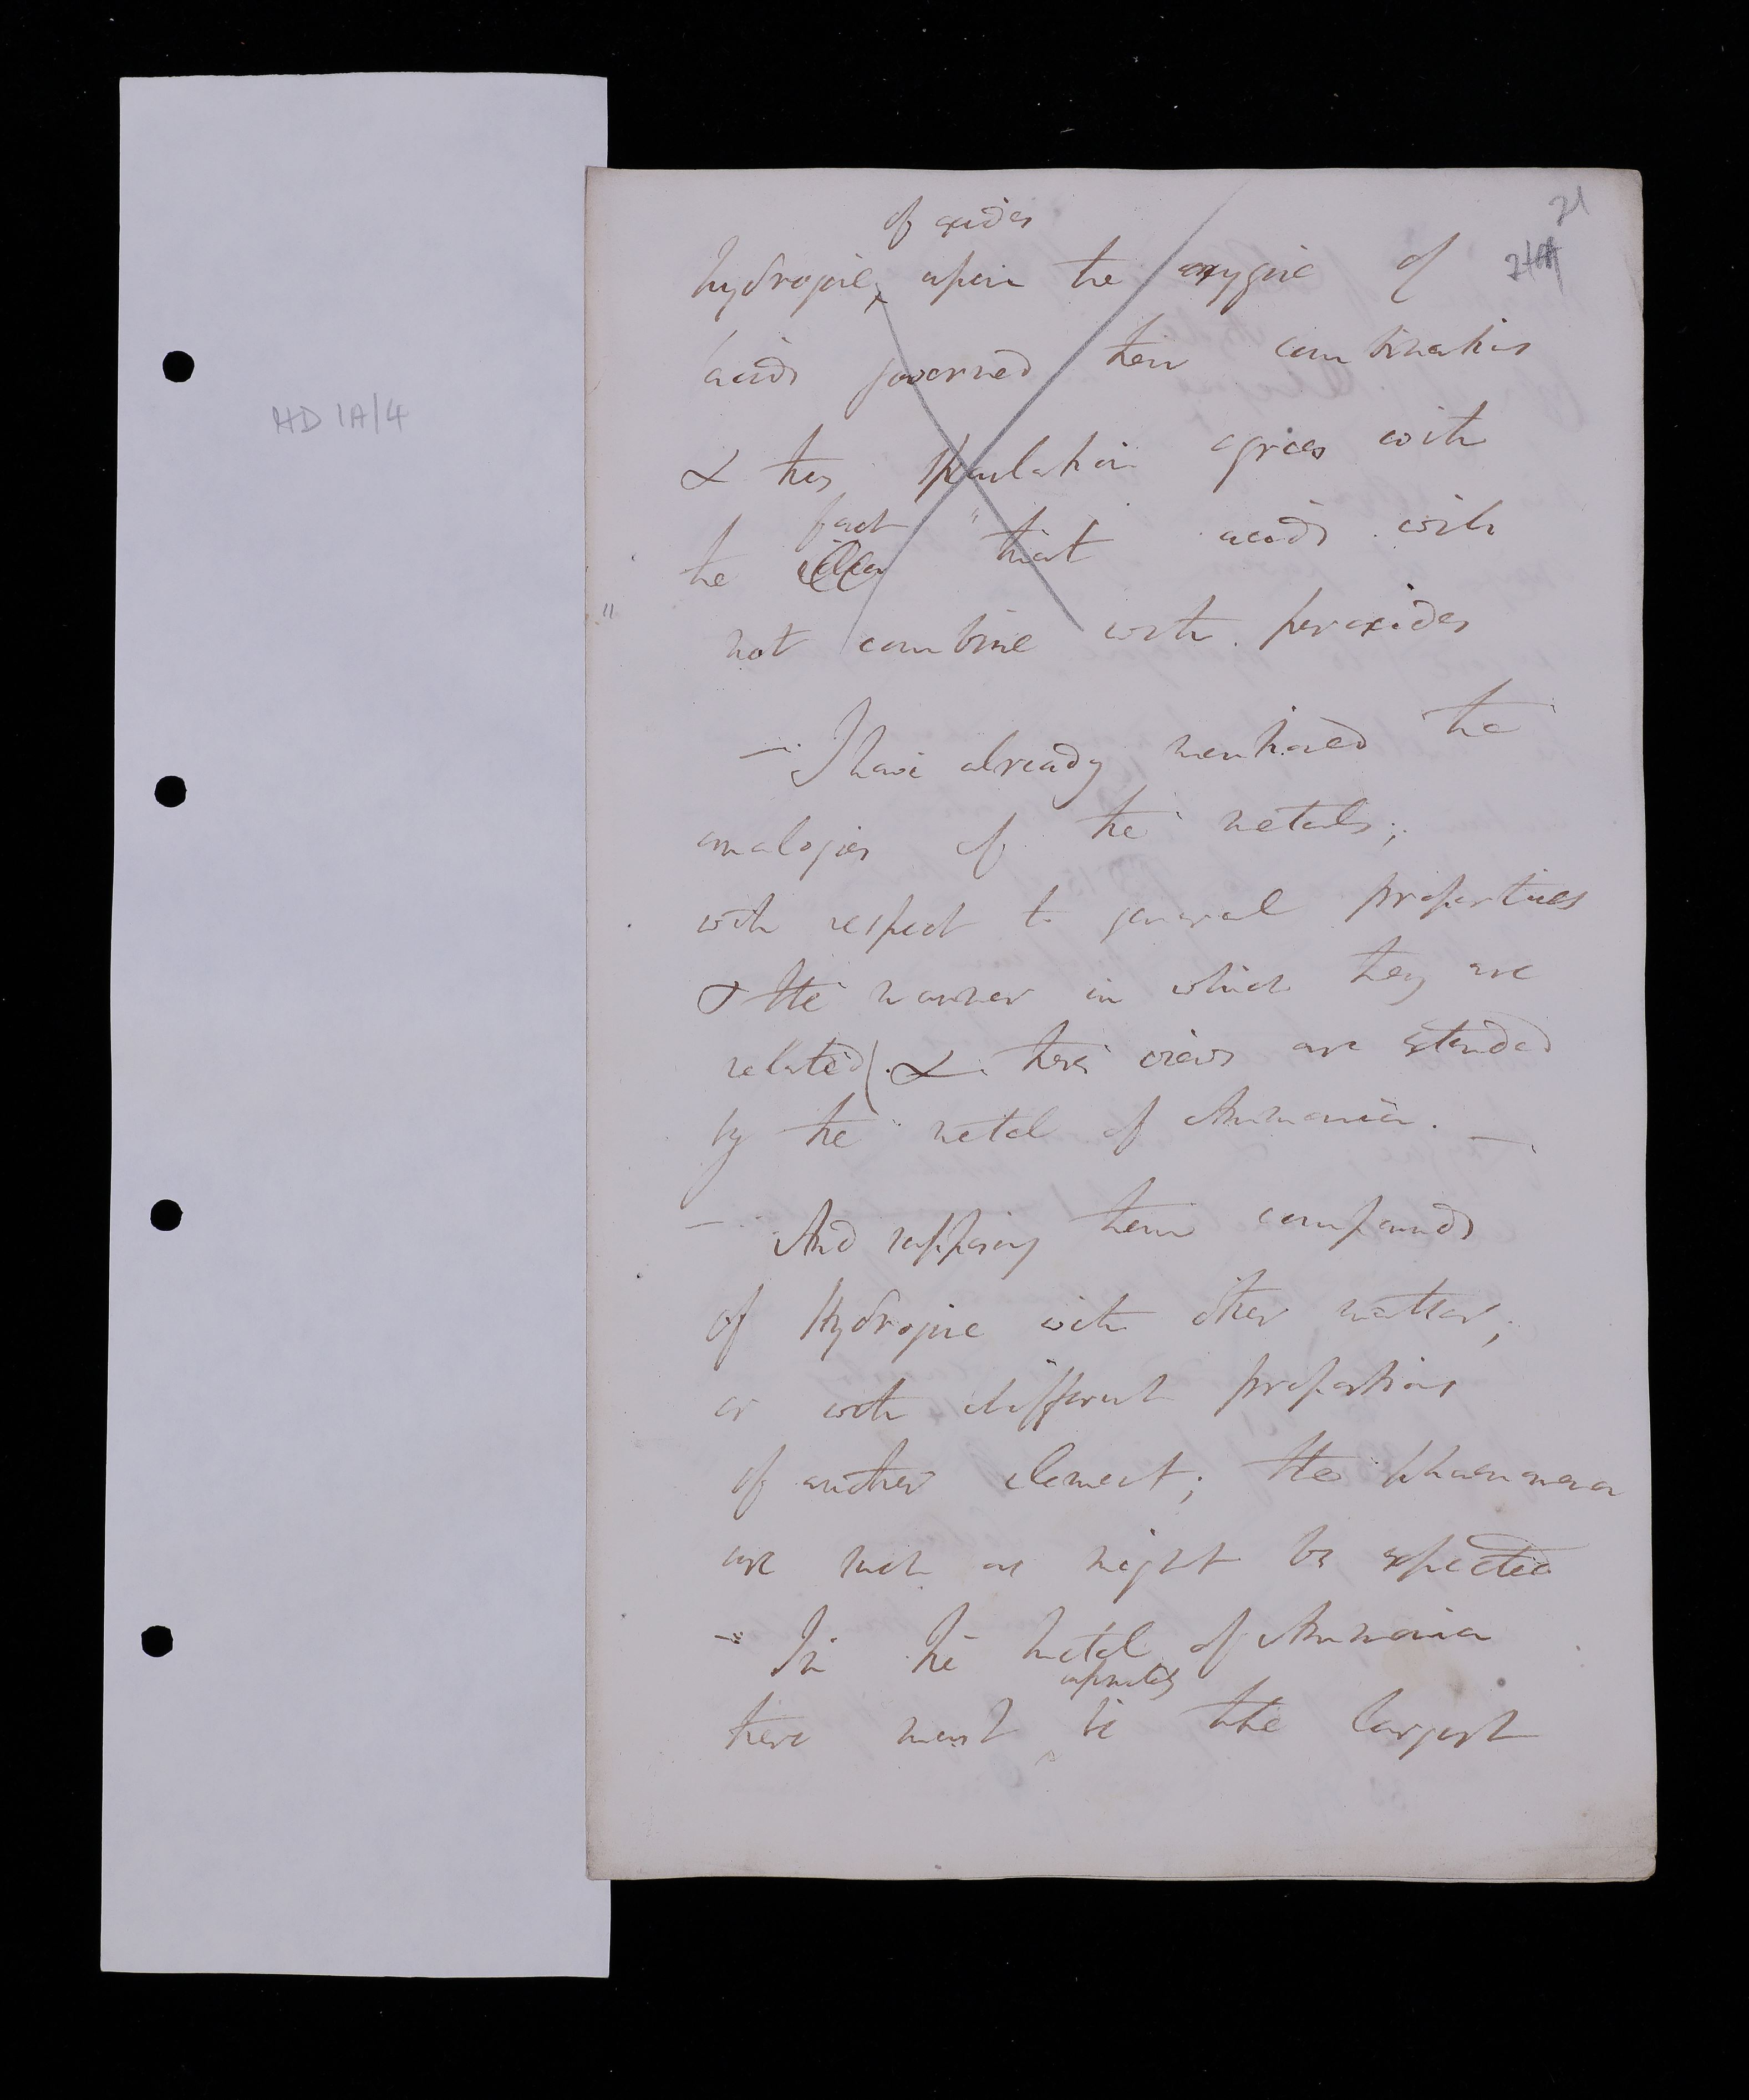 HD 1A/4
21
of oxides
hydrogene, upon the oxygene of
acids governed their combinations
& this speculation agrees with
fact
the that acids will
not combine with peroxides
— I have already mentioned the
analogies of the metals;
with respect to general properties
& the manner in which they are
related). & these views are extended
by the metal of Ammonia. —
— And supposing them compounds
of Hydrogene with other matter;
or with different proportions
of another element; the phaenomena
are such as might be expected
— In the metal of Ammonia
there must be the largest